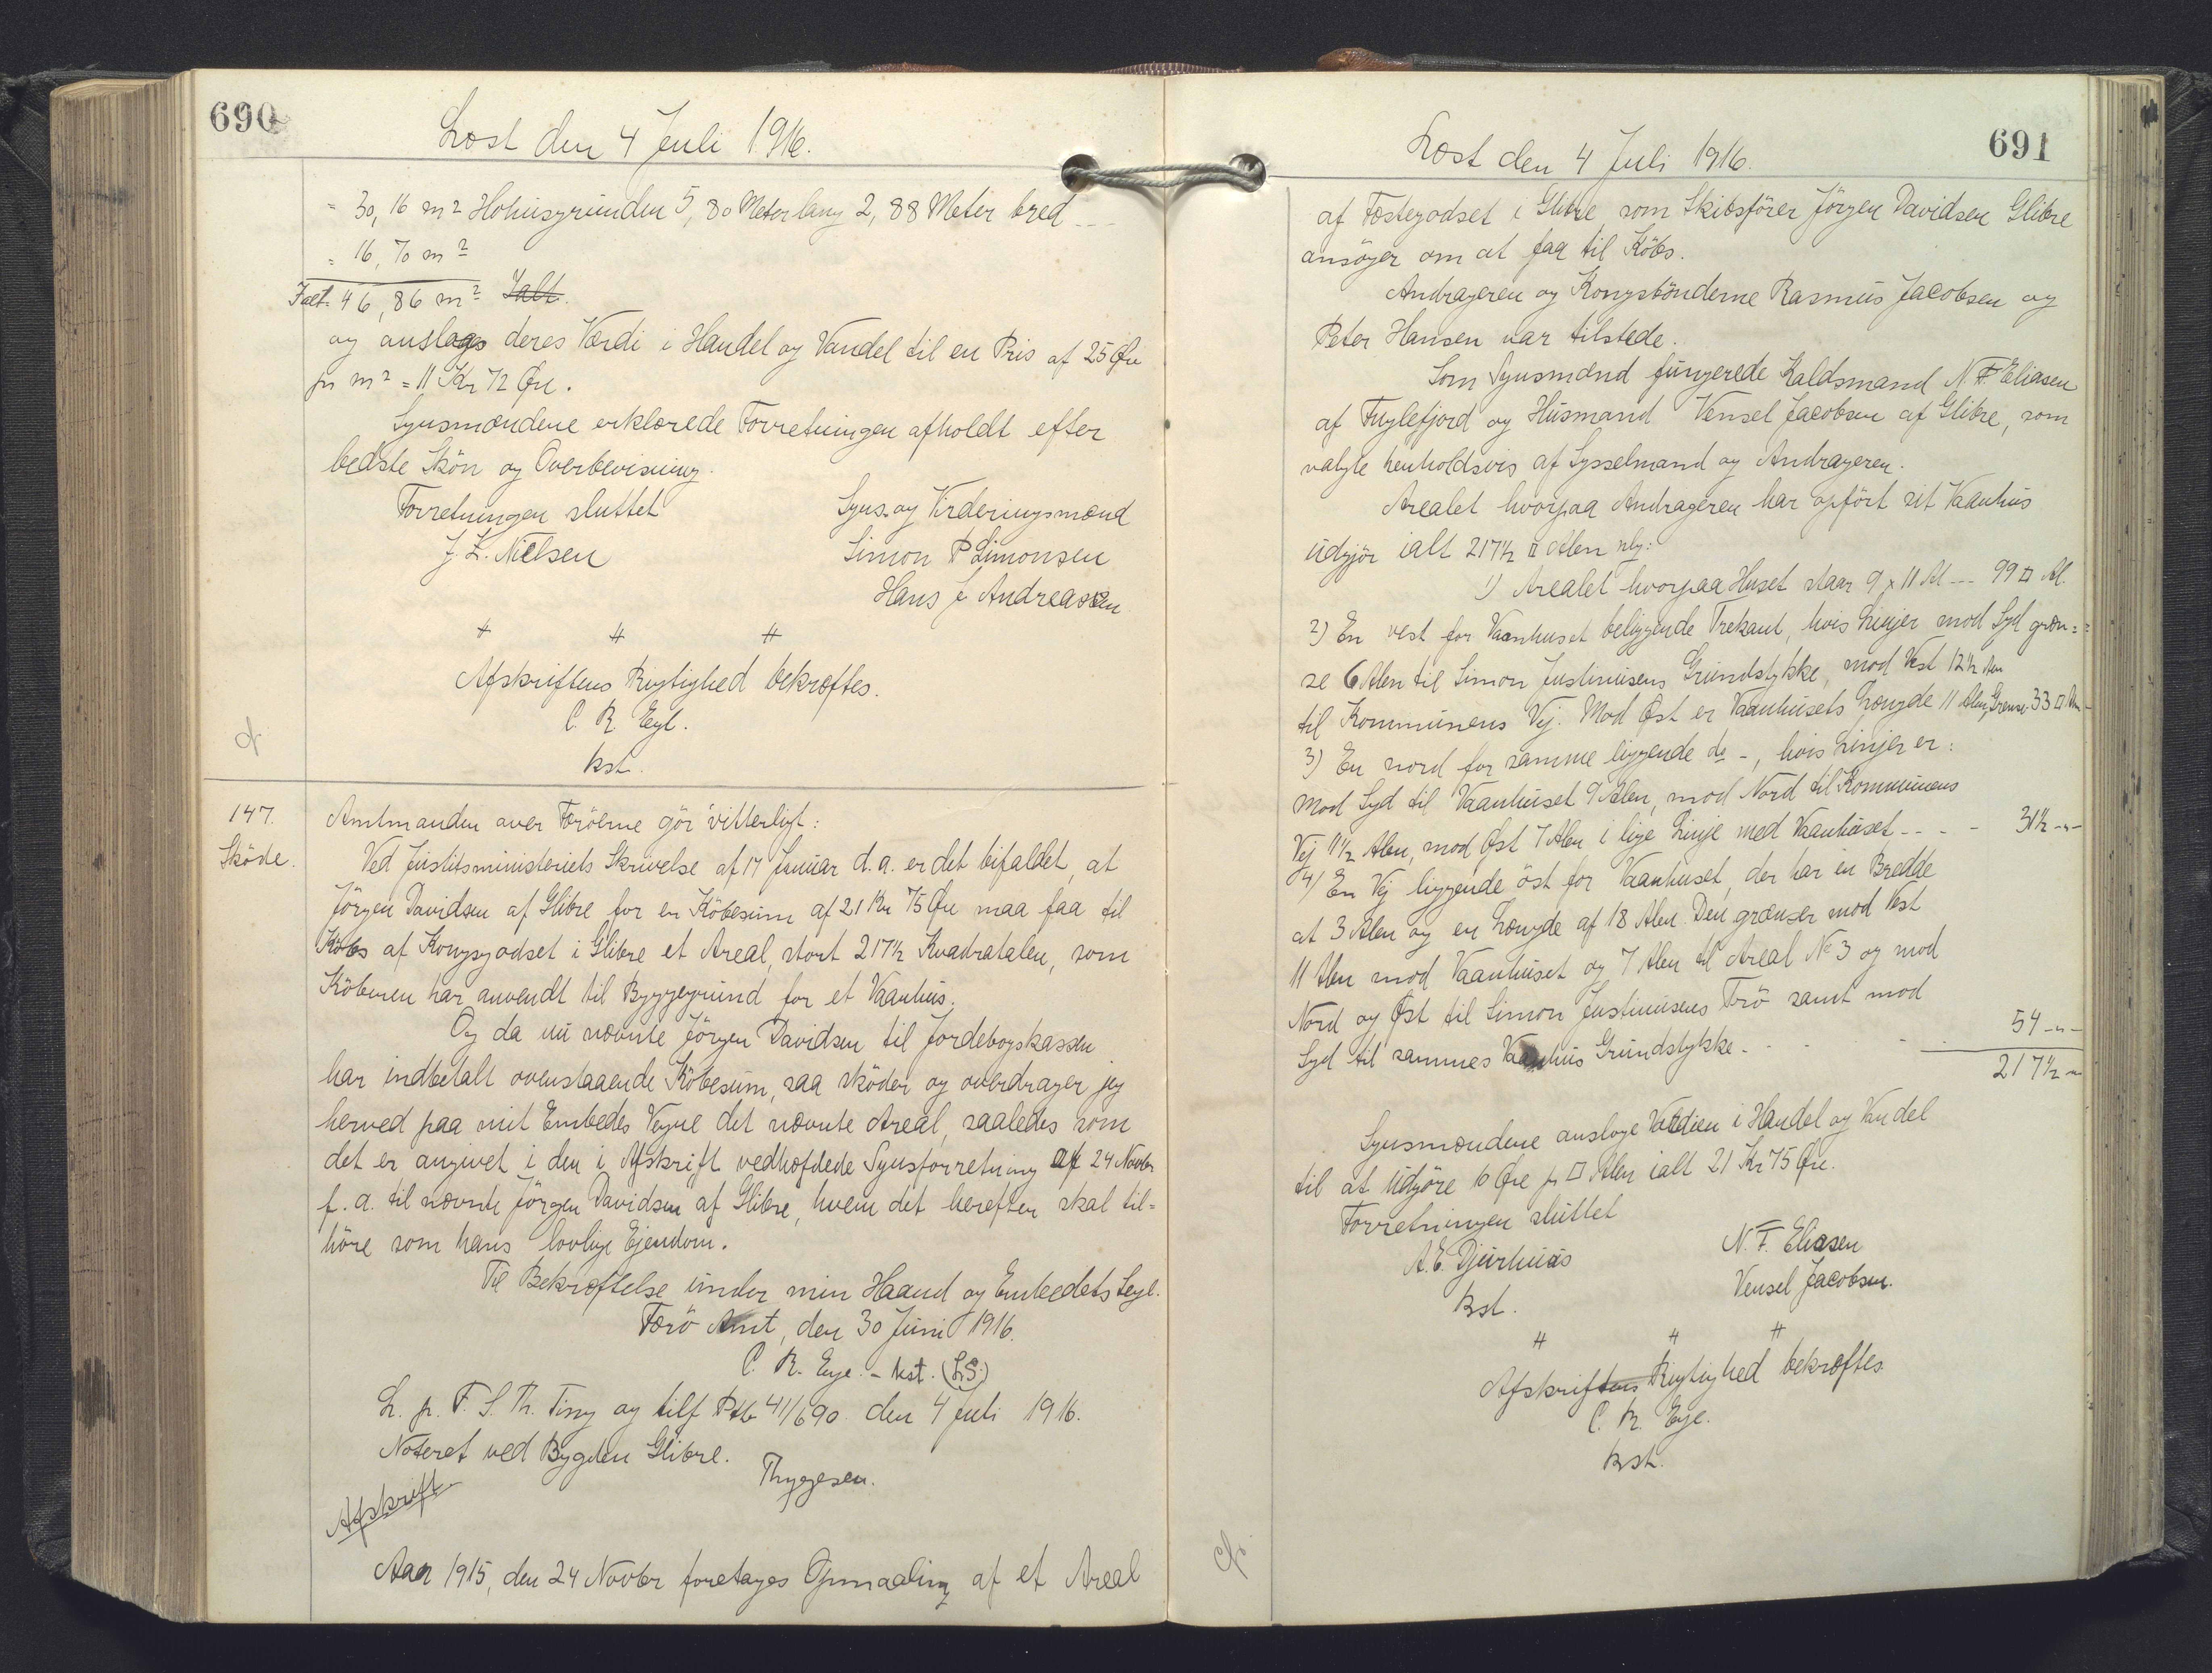 690
Læst den 4 Juli 1916.
= 30,16 m² Hohusgrunden 5,80 Meter lang 2,88 Meter bred
= 16,70 m²
Ialt 46,86 m² Ialt.
og anslags deres Værdi i Handel og Vandel til en Pris af 25 Øre
pr m² = 11 Kr 72 Øre.
Synsmændene erklærede Forretningen afholdt efter
bedste Skön og Overbevisning.
Forretningen sluttet
Syns og Virderingsmænd
J. Z. Nielsen
Simon P Simonsen
Hans J Andreasen
Afskriftens Rigtighed bekræftes.
C. R. Eyl.
kst.
cf.
147.
Sköde.
Amtmanden over Færöerne gör vitterligt:
Ved Justitsministeriets Skrivelse af 17 Januar d.a. er det bifaldet, at
Jörgen Davidsen af Glibre for en Köbesum af 21 Kr 75 Øre maa faa til
Köbs af Kongsgodset i Glibre et Areal, stort 217½ Kvadratalen, som
Köberen har anvendt til Byggegrund for et Vaanhus.
Og da nu nævnte Jörgen Davidsen til Jordebogskassen
har indbetalt ovenstaaende Köbesum, saa sköder og overdrager jeg
herved paa mit Embedes Vegne det nævnte Areal, saaledes som
det er angivet i den i Afskrift vedhæftede Synsforretning af 24 Novbr
f.a. til nævnte Jörgen Davidsen af Glibre, hvem det herefter skal til=
höre som hans lovlige Ejendom.
Til Bekræftelse under min Haand og Embedets Segl.
Færö Amt, den 30 Juni 1916.
C. R. Eye. - kst. (L.S.)
L. p. F. S. Th. Ting og tilf Ptb 41/690 den 4 Juli 1916.
Noteret ved Bygden Glibre.
Thygesen.
Afskrift
Aar 1915, den 24 Novbr foretages Opmaaling af et Areal
691
Læst den 4 Juli 1916.
af Fæstegodset i Glibre som Skibsförer Jörgen Davidsen Glibre
ansöger om at faa til Köbs.
Andrageren og Kongsbönderne Rasmus Jacobsen og
Peter Hansen var tilstede.
Som Synsmænd fungerede Kaldsmand N. F. Eliasen
af Fuglefjord og Husmand Vensel Jacobsen af Glibre, som
valgte henholdsvis af Sysselmand og Andrageren.
Arealet hvorpaa Andrageren har opfört sit Vaanhus
udgjör ialt 217½ □ Alen nlg:
1) Arealet hvorpaa Huset staar 9 x 11 Al --- 99 □ Al.
2) En vest for Vaanhuset beliggende Trekant, hvis Linjer mod Syd græn=
se 6 Alen til Simon Justinusens Grundstykke, mod Vest 12½ Alen
til Kommunens Vej. Mod Øst er Vaanhusets Længde 11 Alen, Grense 33 □ Alen
3) En nord for samme liggende do -, hvis Linjer er:
Mod Syd til Vaanhuset 9 Alen, mod Nord til Kommunens
Vej 11½ Alen, mod Øst 7 Alen i lige Linje med Vaanhuset - - - - 31½ -"-
4) En Vej liggende öst for Vaanhuset, der har en Bredde
at 3 Alen og en Længde af 18 Alen. Den grænser mod Vest
11 Alen mod Vaanhuset og 7 Alen til Areal No 3 og mod
Nord og Øst til Simon Justinusens Trö samt mod
Syd til sammes Vaanhus Grundstykke. - - - 54 -"-
217½ -"-
Synsmændene ansloge Værdien i Handel og Vandel
til at udgjöre 10 Øre pr □ Alen ialt 21 Kr 75 Øre.
Forretningen sluttet
A. E. Djurhuus
kst.
N. F. Eliasen
Vensel Jacobsen.
Afskriftens Rigtighed bekræftes
C. R. Eye.
kst.
cf.